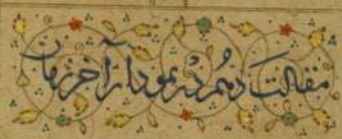 مقالت دهم در نمودار آخر زمان